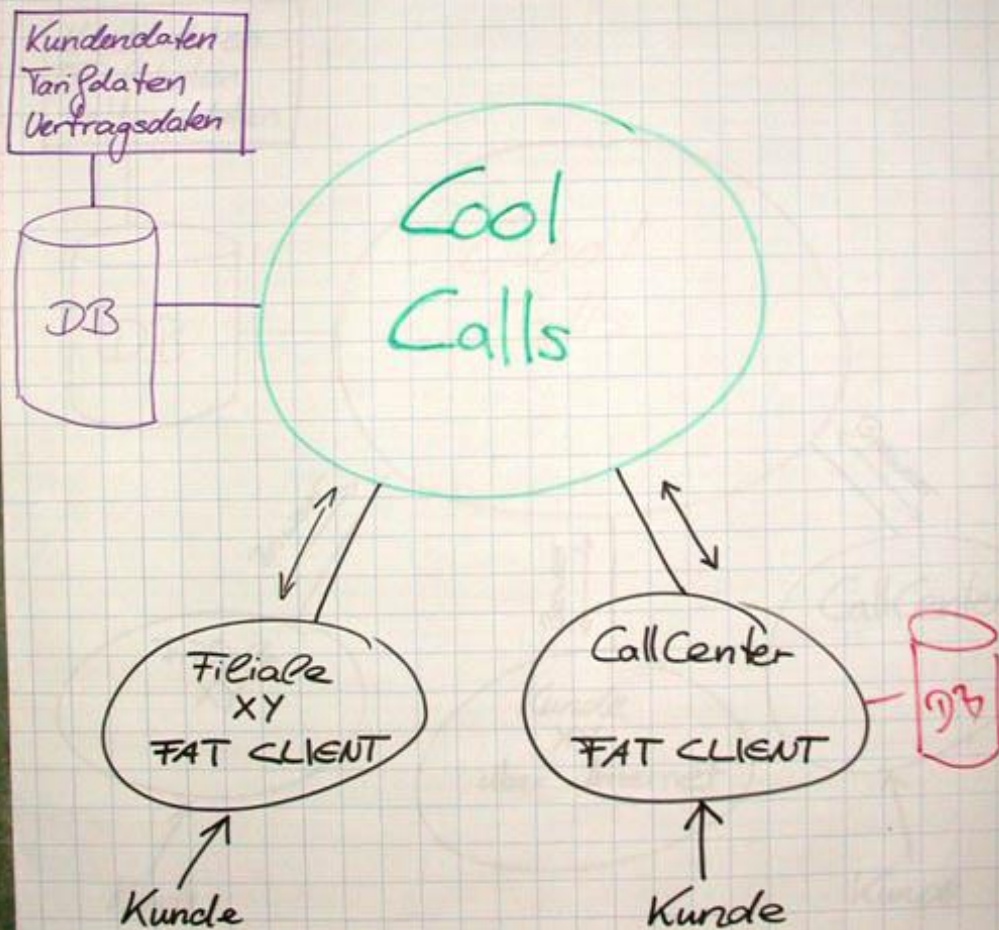 Kundendaten
Tarifdaten
Vertragsdaten
DB
Cool
Calls
Filiale
XY
FAT CLIENT
CallCenter
FAT CLIENT
DB
Kunde
Kunde